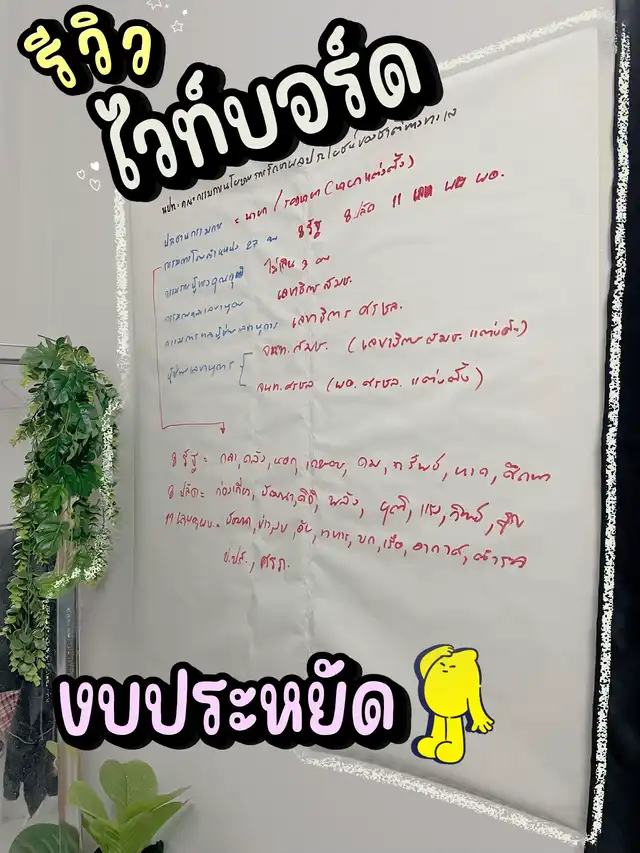 รีวิว
ไวท์บอร์ด
นปท. คณะกรรมการนโยบายการรักษาผลประโยชน์ของชาติทางทะเล
ประธานกรรมการ = นายก / รองนายก (นายกแต่งตั้ง)
กรรมการโดยตำแหน่ง 27 คน 8 รัฐ 8 ปลัด 11 เลข ผบ ผอ.
กรรมการผู้ทรงคุณวุฒิ ไม่เกิน คน
กรรมการและเลขานุการ เลขาธิการ สมช.
กรรมการและผู้ช่วยเลขานุการ เลขาธิการ ศรชล.
ผู้ช่วยเลขานุการ จนท. สมช. (เลขาธิการ สมช. แต่งตั้ง)
จนท. ศรชล (ผอ. ศรชล. แต่งตั้ง)
8 รัฐ = กลา, คลัง, นอก, คม, ทรัพย์, มาด, ศึกษา
8 ปลัด = ท่องเที่ยว, พัฒนา, ดิจิ, พลัง, ยุติ, แรง, ทิพย์, สุข
11 เลข, ผบ = อัย, ทหาร, บก, เรือ, อากาศ, ตำรวจ
ป.ปส.,
งบประหยัด